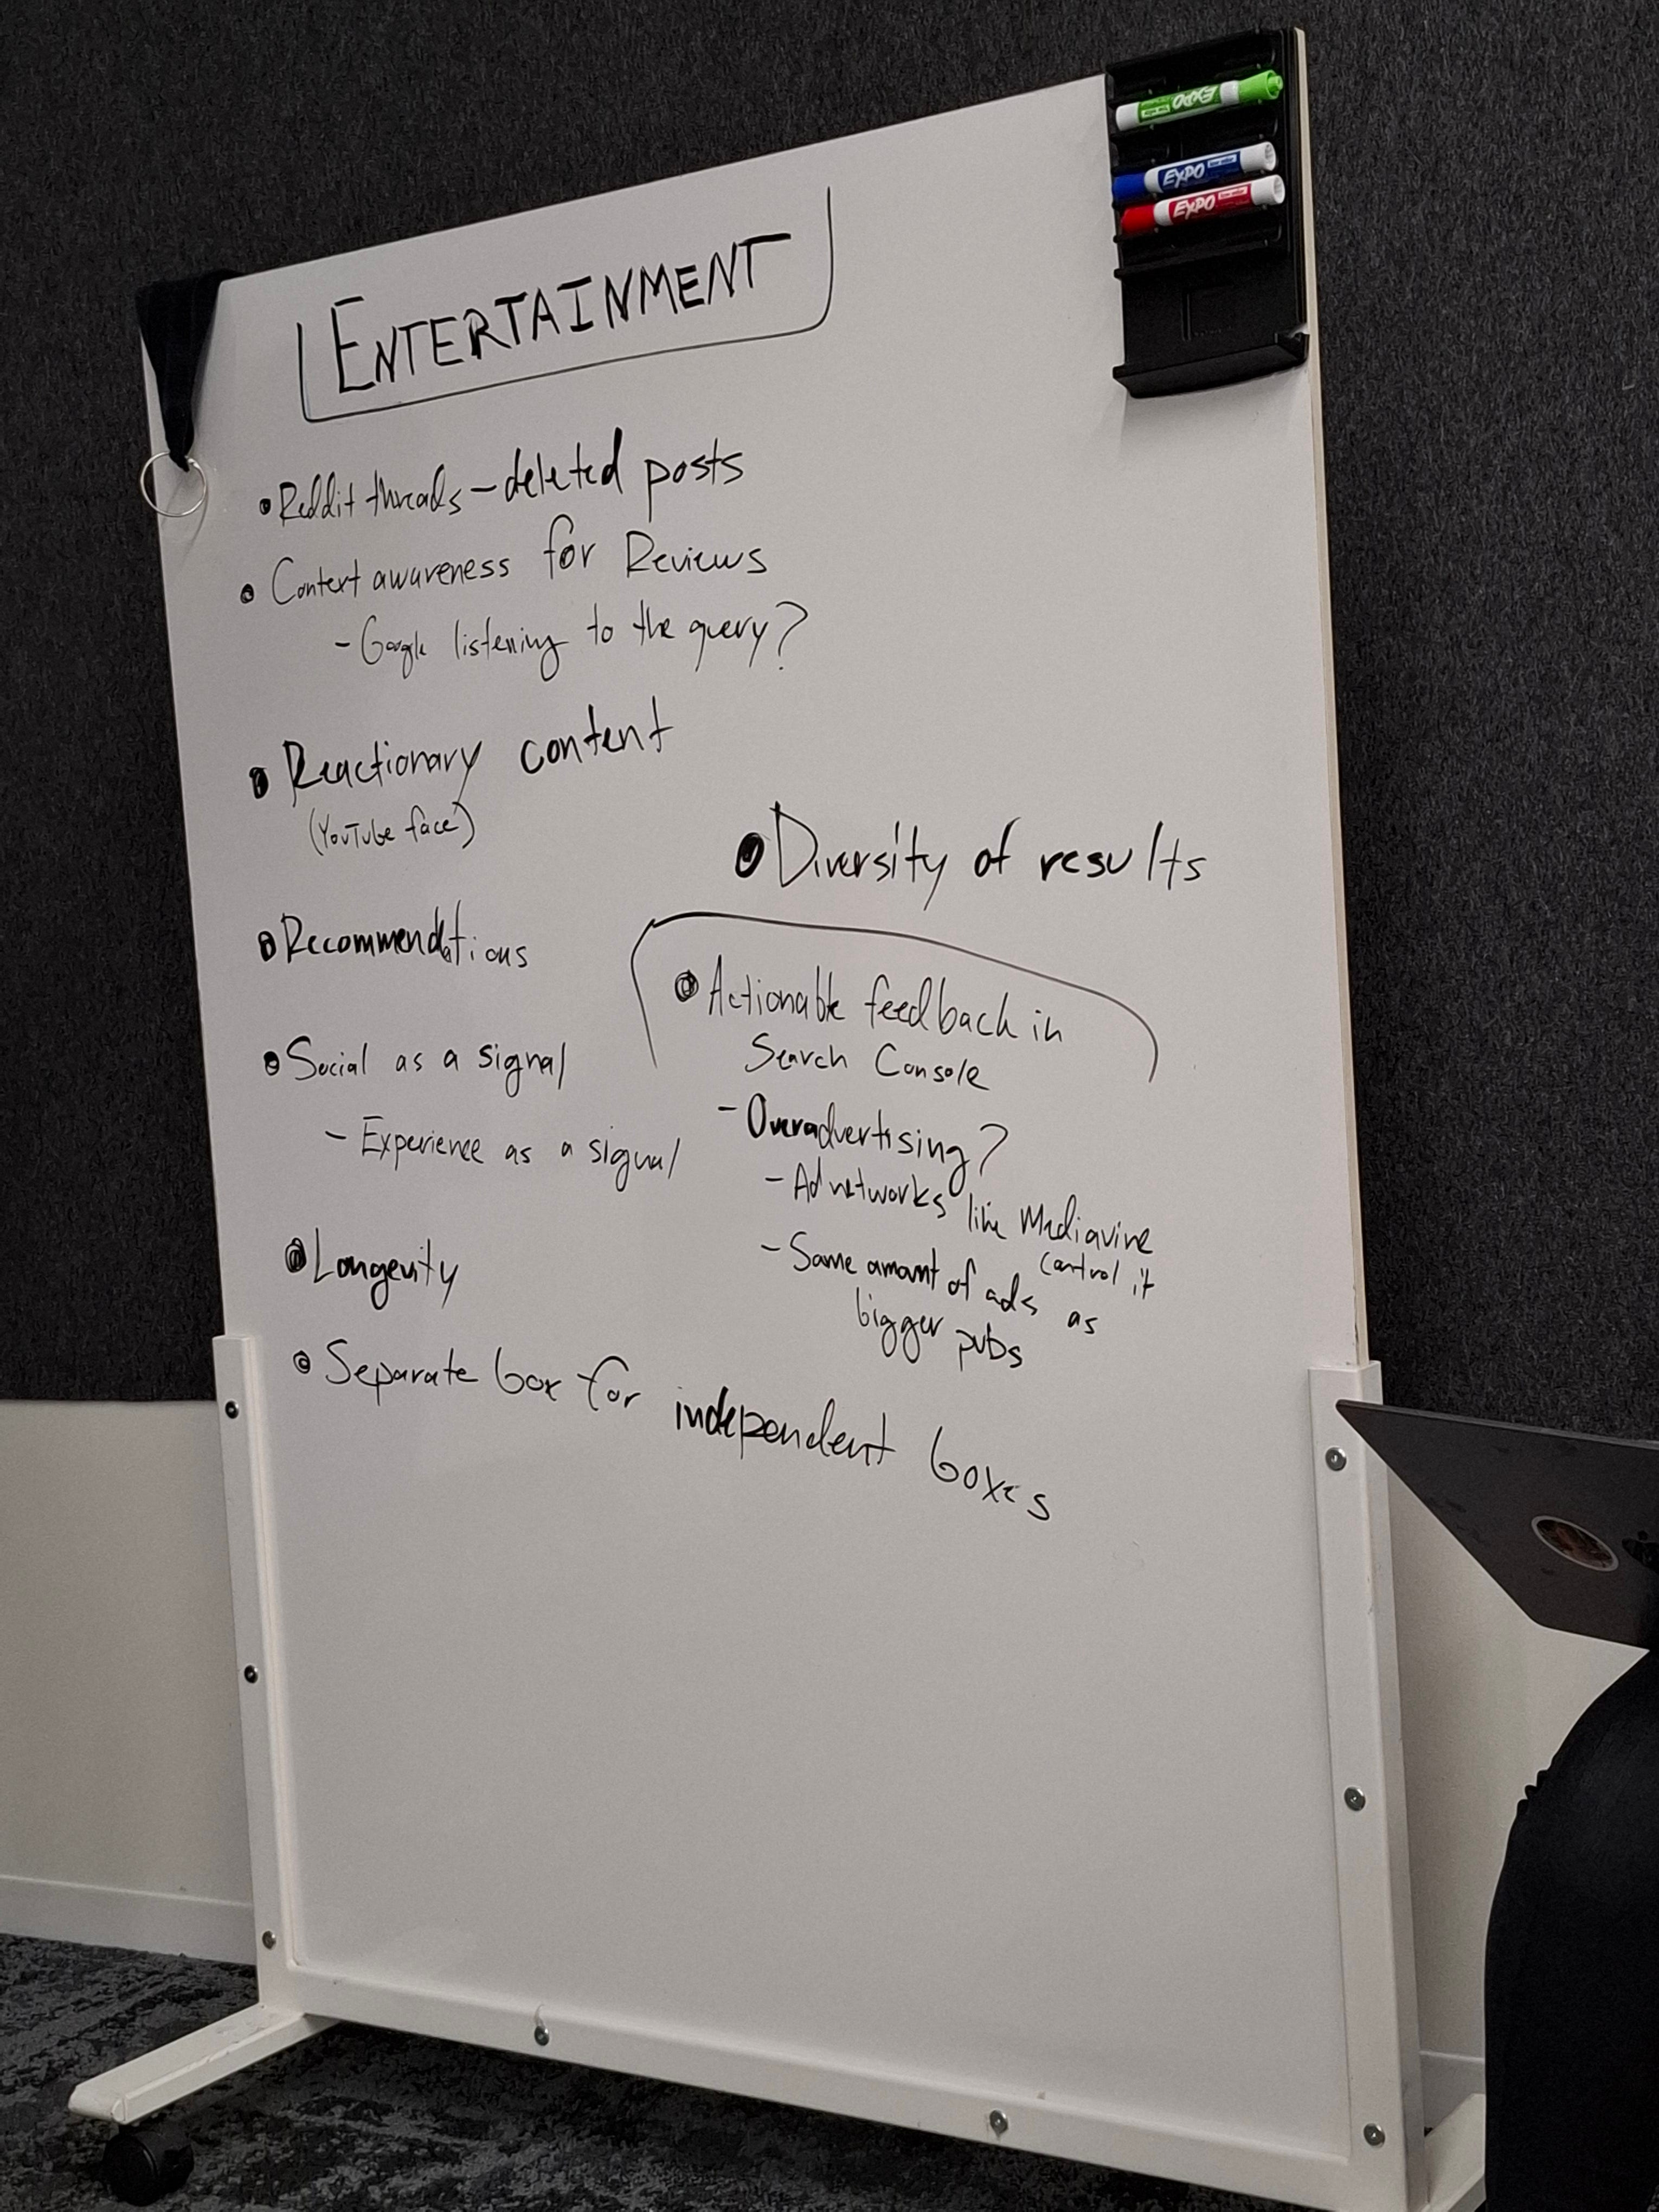 ENTERTAINMENT
• Reddit threads - deleted posts
• Context awareness for Reviews
- Google listening to the query?
• Reactionary content
(YouTube face)
• Recommendations
• Social as a signal
- Experience as a signal
• Longevity
• Separate box for independent boxes
• Diversity of results
• Actionable feedback in
Search Console
- Overadvertising?
- Ad networks like Mediavine
control it
- Same amount of ads as
bigger pubs
EXPO
EXPO
EXPO